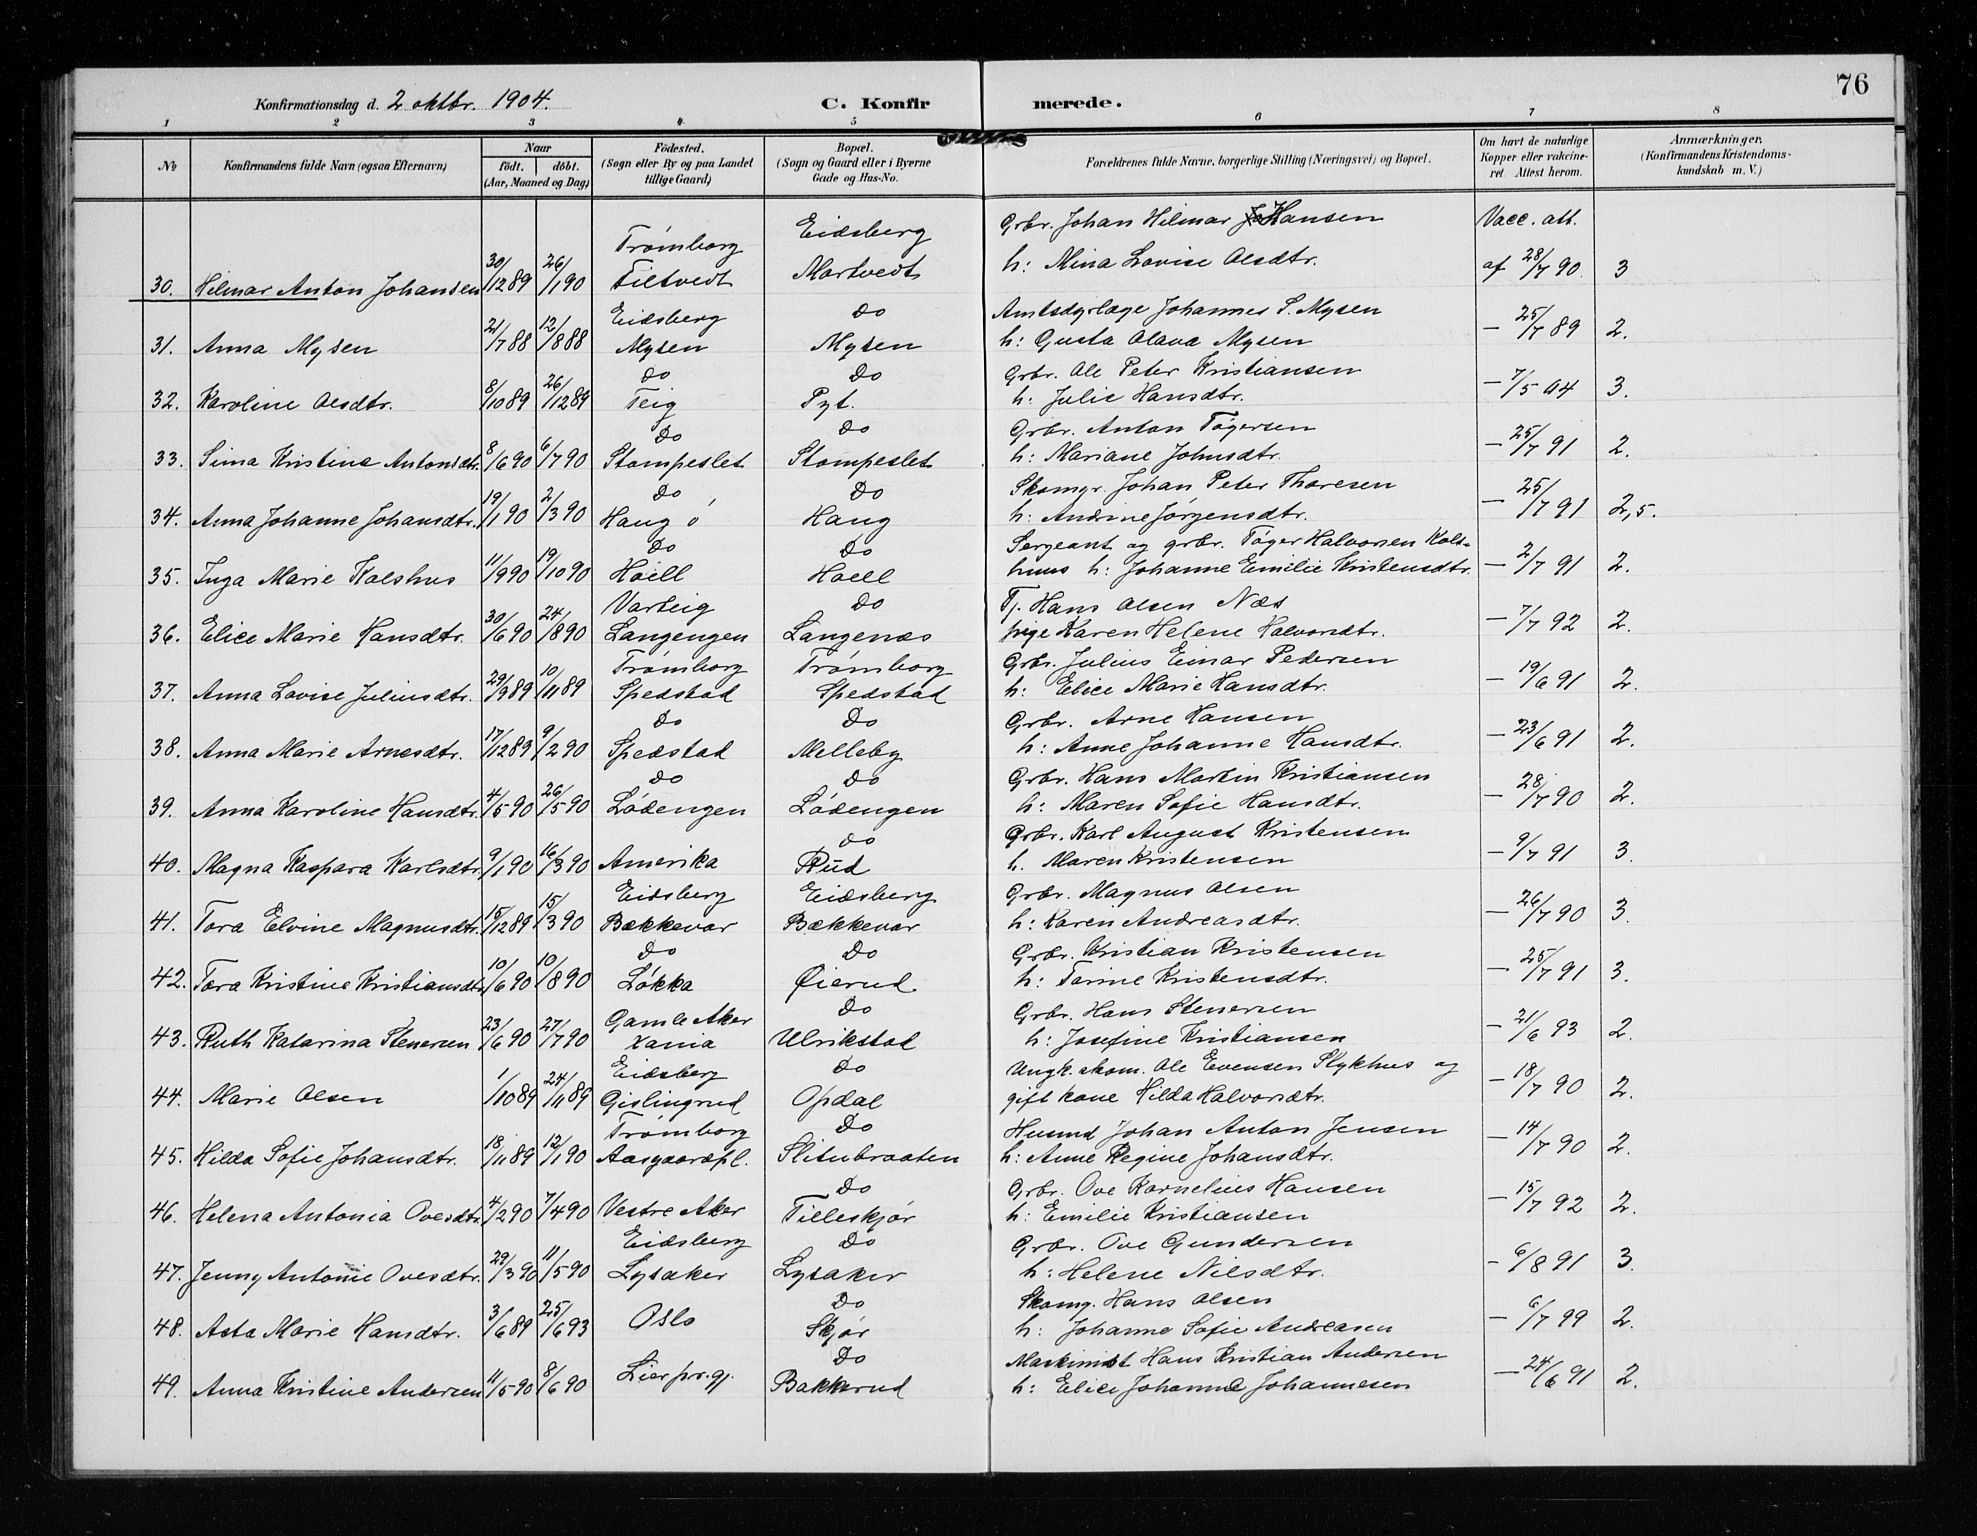 76
Konfirmationsdag d. 2 oktbr. 1904. C. Konfirmerede.
1 2 3 4 5 6 7 8
No Konfirmandens fulde Navn (ogsaa Efternavn) Naar födt. döbt. (Aar, Maaned og Dag) Födested. (Sogn eller By og paa Landet tillige Gaard) Bopæl. (Sogn og Gaard eller i Byerne Gade og Hus-No. Forældrenes fulde Navne, borgerlige Stilling (Næringsvei) og Bopæl. Om havt de naturlige Kopper eller vakcineret. Attest herom. Anmærkninger. (Konfirmandens Kristendomskundskab m. V.)
Trømborg Eidsberg Grbr. Johan Hilmar Hansen Vacc. att.
30. Hilmar Anton Johansen 30/12 89 26/1 90 Tiltvedt Martvedt h: Mina Lovise Olsdtr. af 28/7 90 3
Eidsberg Do Amtsdyrlæge Johannes S. Mysen
31. Anna Mysen 21/7 88 12/8 88 Mysen Mysen h: Gusta Olava Mysen — 25/7 89 2.
Do Do Grbr. Ole Peter Kristiansen
32. Karoline Olsdtr. 8/10 89 26/12 89 Teig Pyt. h: Julie Hansdtr. — 7/5 04 3.
Do Do Grbr. Anton Tøgersen
33. Sima Kristine Antonsdtr. 8/6 90 6/7 90 Stompeslet Stompeslet h: Mariane Johnsdtr. — 25/7 91 2.
Do Do Skomgr. Johan Peter Thoresen
34. Anna Johanne Johansdtr. 19/1 90 2/3 90 Haug ó Haug h: Andrine Jørgensdtr. — 25/7 91 2,5.
Do Do Sergeant og grbr. Tøger Halvorsen Kols-
35. Inga Marie Kolshus 11/9 90 19/10 90 Hoell Hoell huus h: Johanne Emilie Kristensdtr. — 2/7 91 2.
Varteig Do Tj. Hans Olsen Næs
36. Elice Marie Hansdtr. 30/6 90 24/8 90 Langengen Langenæs pige Karen Helene Halvorsdtr. — 7/7 92 2.
Trømborg Trømborg Grbr. Julius Einar Pedersen
37. Anna Lovise Juliusdtr. 29/9 89 10/11 89 Spedstad Spedstad h: Elice Marie Hansdtr. — 19/6 91 2.
Do Do Grbr. Arne Hansen
38. Anna Marie Arnesdtr. 17/12 89 9/2 90 Spedstad Melleby h: Anne Johanne Hansdtr. — 23/6 91 2.
Do Do Grbr. Hans Martin Kristiansen
39. Anna Karoline Hansdtr. 4/5 90 26/5 90 Lødengen Lødengen h: Maren Sofie Hansdtr. — 28/7 90 2.
Do Grbr. Karl August Kristensen
40. Magna Kaspara Karlsdtr. 9/1 90 16/3 90 Amerika Rud h. Maren Kristensen — 9/7 91 3.
Eidsberg Eidsberg Grbr. Magnus Olsen
41. Tora Elvine Magnusdtr. 15/12 89 15/3 90 Bækkevar Bækkevar h: Karen Andreasdtr. — 26/7 90 3.
Do Do Grbr. Kristian Kristensen
42. Tora Kristine Kristiansdtr. 10/6 90 10/8 90 Løkka Øierud h: Tarine Kristensdtr. — 25/7 91 3.
Gamle Aker Do Grbr. Hans Stenersen
43. Ruth Katarina Stenersen 23/6 90 27/7 90 Xania Ulrikstad h: Josefine Kristiansen — 21/6 93 2.
Eidsberg Do Ungk. skom. Ole Evensen Slykhus og
44. Marie Olsen 1/10 89 24/11 89 Gislingrud Opdal gift kone Hilda Halvorsdtr. — 18/7 90 2.
Trømborg Do Husmd Johan Anton Jensen
45. Hilda Sofie Johansdtr. 18/11 89 12/1 90 Aasgaardpl. Slitubraaten h: Anne Regine Johansdtr. — 14/7 90 2.
Do Grbr. Ove Kornelius Hansen
46. Helena Antonia Ovesdtr. 4/2 90 7/4 90 Vestre Aker Tilleskjør h: Emilie Kristiansen — 15/7 92 2.
Eidsberg Do Grbr. Ove Gundersen
47. Jenny Antonie Ovesdtr. 29/3 90 11/5 90 Lysaker Lysaker h: Helene Nilsdtr. — 6/8 91 3.
Do Skomg. Hans Olsen
48. Asta Marie Hansdtr. 3/6 89 25/6 93 Oslo Skjør h: Johanne Sofie Andreasen — 6/7 99 2.
Do Maskinist Hans Kristian Andersen
49. Anna Kristine Andersen 11/5 90 8/6 90 Lier pr.gj. Bakkerud h: Elice Johanne Johannesen — 24/6 91 2.